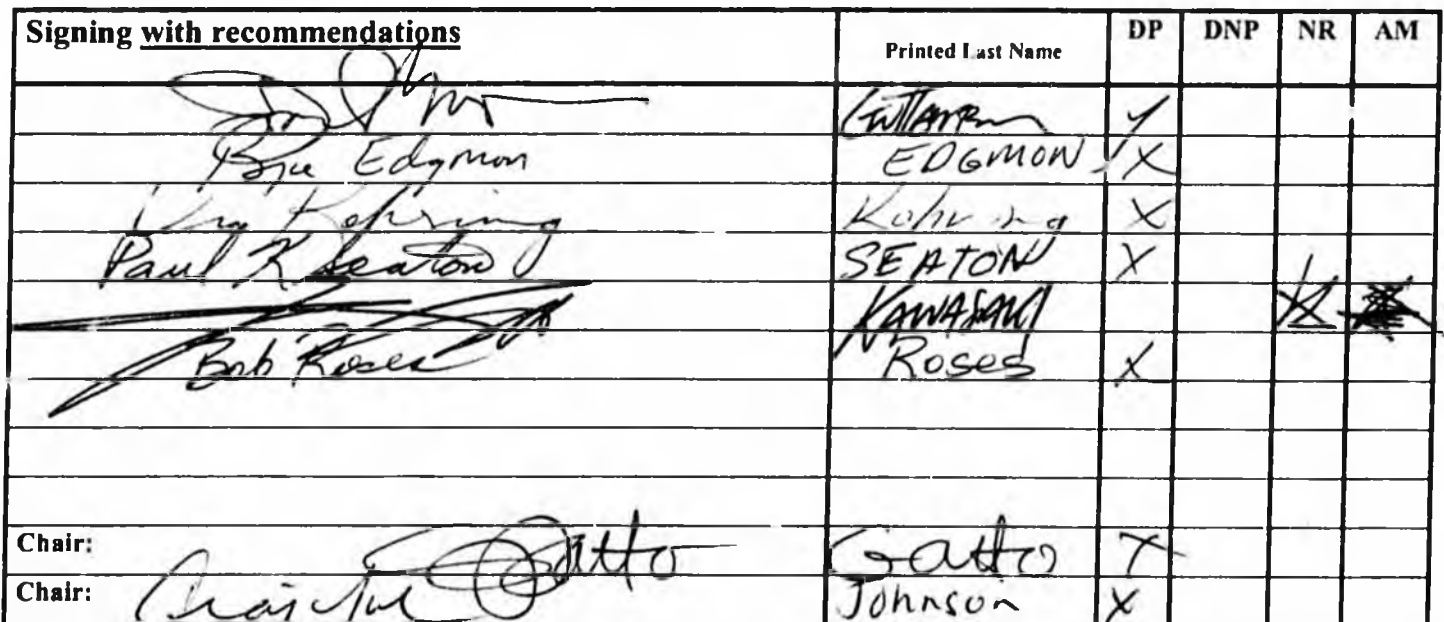 Signing with recommendations Printed Last Name DP DNP NR AM
Guttenberg
Bryce Edgmon EDGMON X
Vic Kohring Kohring X
Paul K Seaton SEATON X
KAWASAKI X
Bob Roses Roses X
Chair: Gatto Gatto X
Chair: Craig Johnson Johnson X